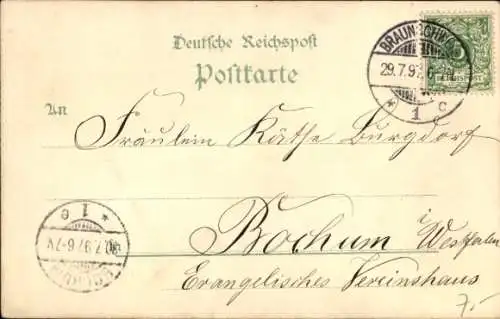 Deutsche Reichspost
Postkarte
BRAUNSCHWEIG
29.7.97. 6-
* 1 c
REICHSPOST
An
Fräulein Käthe Burgdorf
Bochum i/
Westfalen
Evangelisches Vereinshaus
* 1 e
30.7.97. 6-7V
BOCHUM
7,-